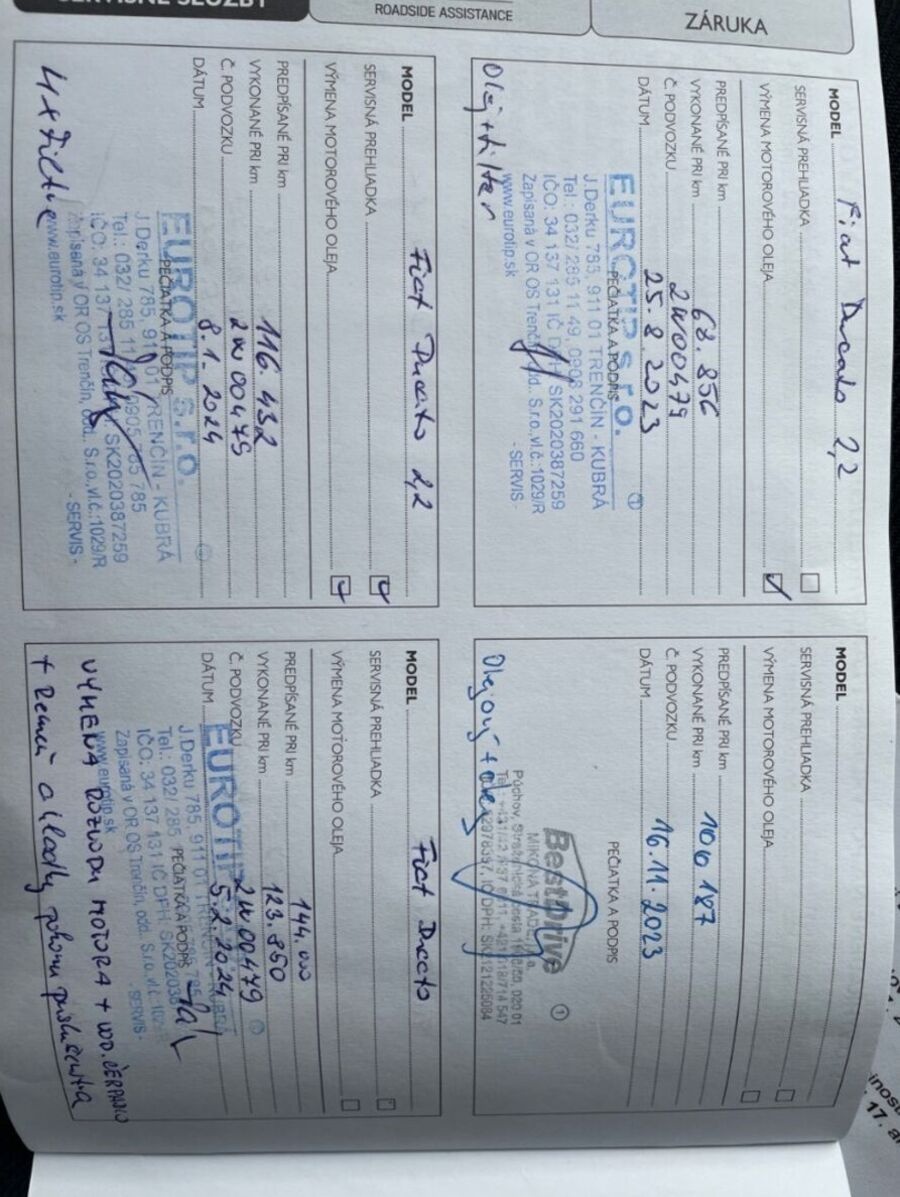 SERVISNÉ SLUŽBY
ROADSIDE ASSISTANCE
ZÁRUKA
MODEL Fiat Ducato 2,2
SERVISNÁ PREHLIADKA
VÝMENA MOTOROVÉHO OLEJA
PREDPÍSANÉ PRI km
VYKONANÉ PRI km 68.856
Č. PODVOZKU 2W00479
DÁTUM 25.8 2023
PEČIATKA A PODPIS
EUROTIP s.r.o.
J.Derku 785, 911 01 TRENČÍN - KUBRÁ
Tel.: 032/ 285 11 49, 0908 291 660
IČO: 34 137 131 IČ DPH: SK2020387259
Zapísaná v OR OS Trenčín, odd. S.r.o.,vl.č.:1029/R
www.eurotip.sk - SERVIS -
Olej + filter
MODEL
SERVISNÁ PREHLIADKA
VÝMENA MOTOROVÉHO OLEJA
PREDPÍSANÉ PRI km
VYKONANÉ PRI km 106 187
Č. PODVOZKU
DÁTUM 16.11.2023
PEČIATKA A PODPIS
BestDrive
MIKONA TRADE
Púchov, 020 01
Olejový +
MODEL Fiat Ducato 2,2
SERVISNÁ PREHLIADKA
VÝMENA MOTOROVÉHO OLEJA
PREDPÍSANÉ PRI km
VYKONANÉ PRI km 116.432
Č. PODVOZKU 2W00479
DÁTUM 8.1.2024
PEČIATKA A PODPIS
EUROTIP s.r.o.
J.Derku 785, 911 01 TRENČÍN - KUBRÁ
Tel.: 032/ 285 11 0905 785
IČO: 34 137 131 SK2020387259
Zapísaná v OR OS Trenčín, odd. S.r.o.,vl.č.:1029/R
www.eurotip.sk - SERVIS -
4x filtre
MODEL Fiat Ducato
SERVISNÁ PREHLIADKA
VÝMENA MOTOROVÉHO OLEJA
PREDPÍSANÉ PRI km 144.000
VYKONANÉ PRI km 123.850
Č. PODVOZKU 2W00479
DÁTUM 5.2.2024
PEČIATKA A PODPIS
EUROTIP
J.Derku 785, 911 01 TRENČÍN KUBRÁ
Tel.: 032/ 285
IČO: 34 137 131 IČ DPH: SK202038
Zapísaná v OR OS Trenčín, odd. S.r.o.,vl.č.:102
www.eurotip.sk - SERVIS -
VÝMENA ROZVODU MOTORA + VOD. ČERPADLO
+ remeň a kladky pohonu príslušenstva